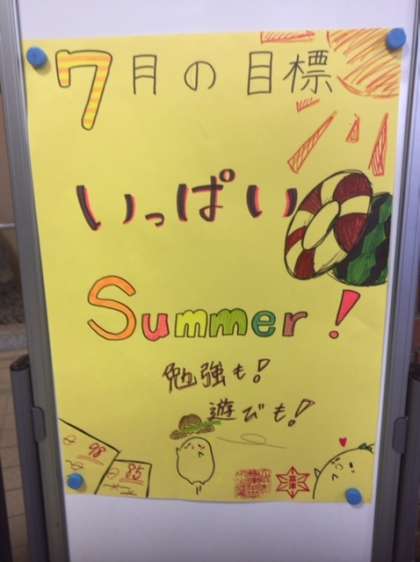 7月の目標
いっぱい
Summer!
勉強も!
遊びも!
98
85